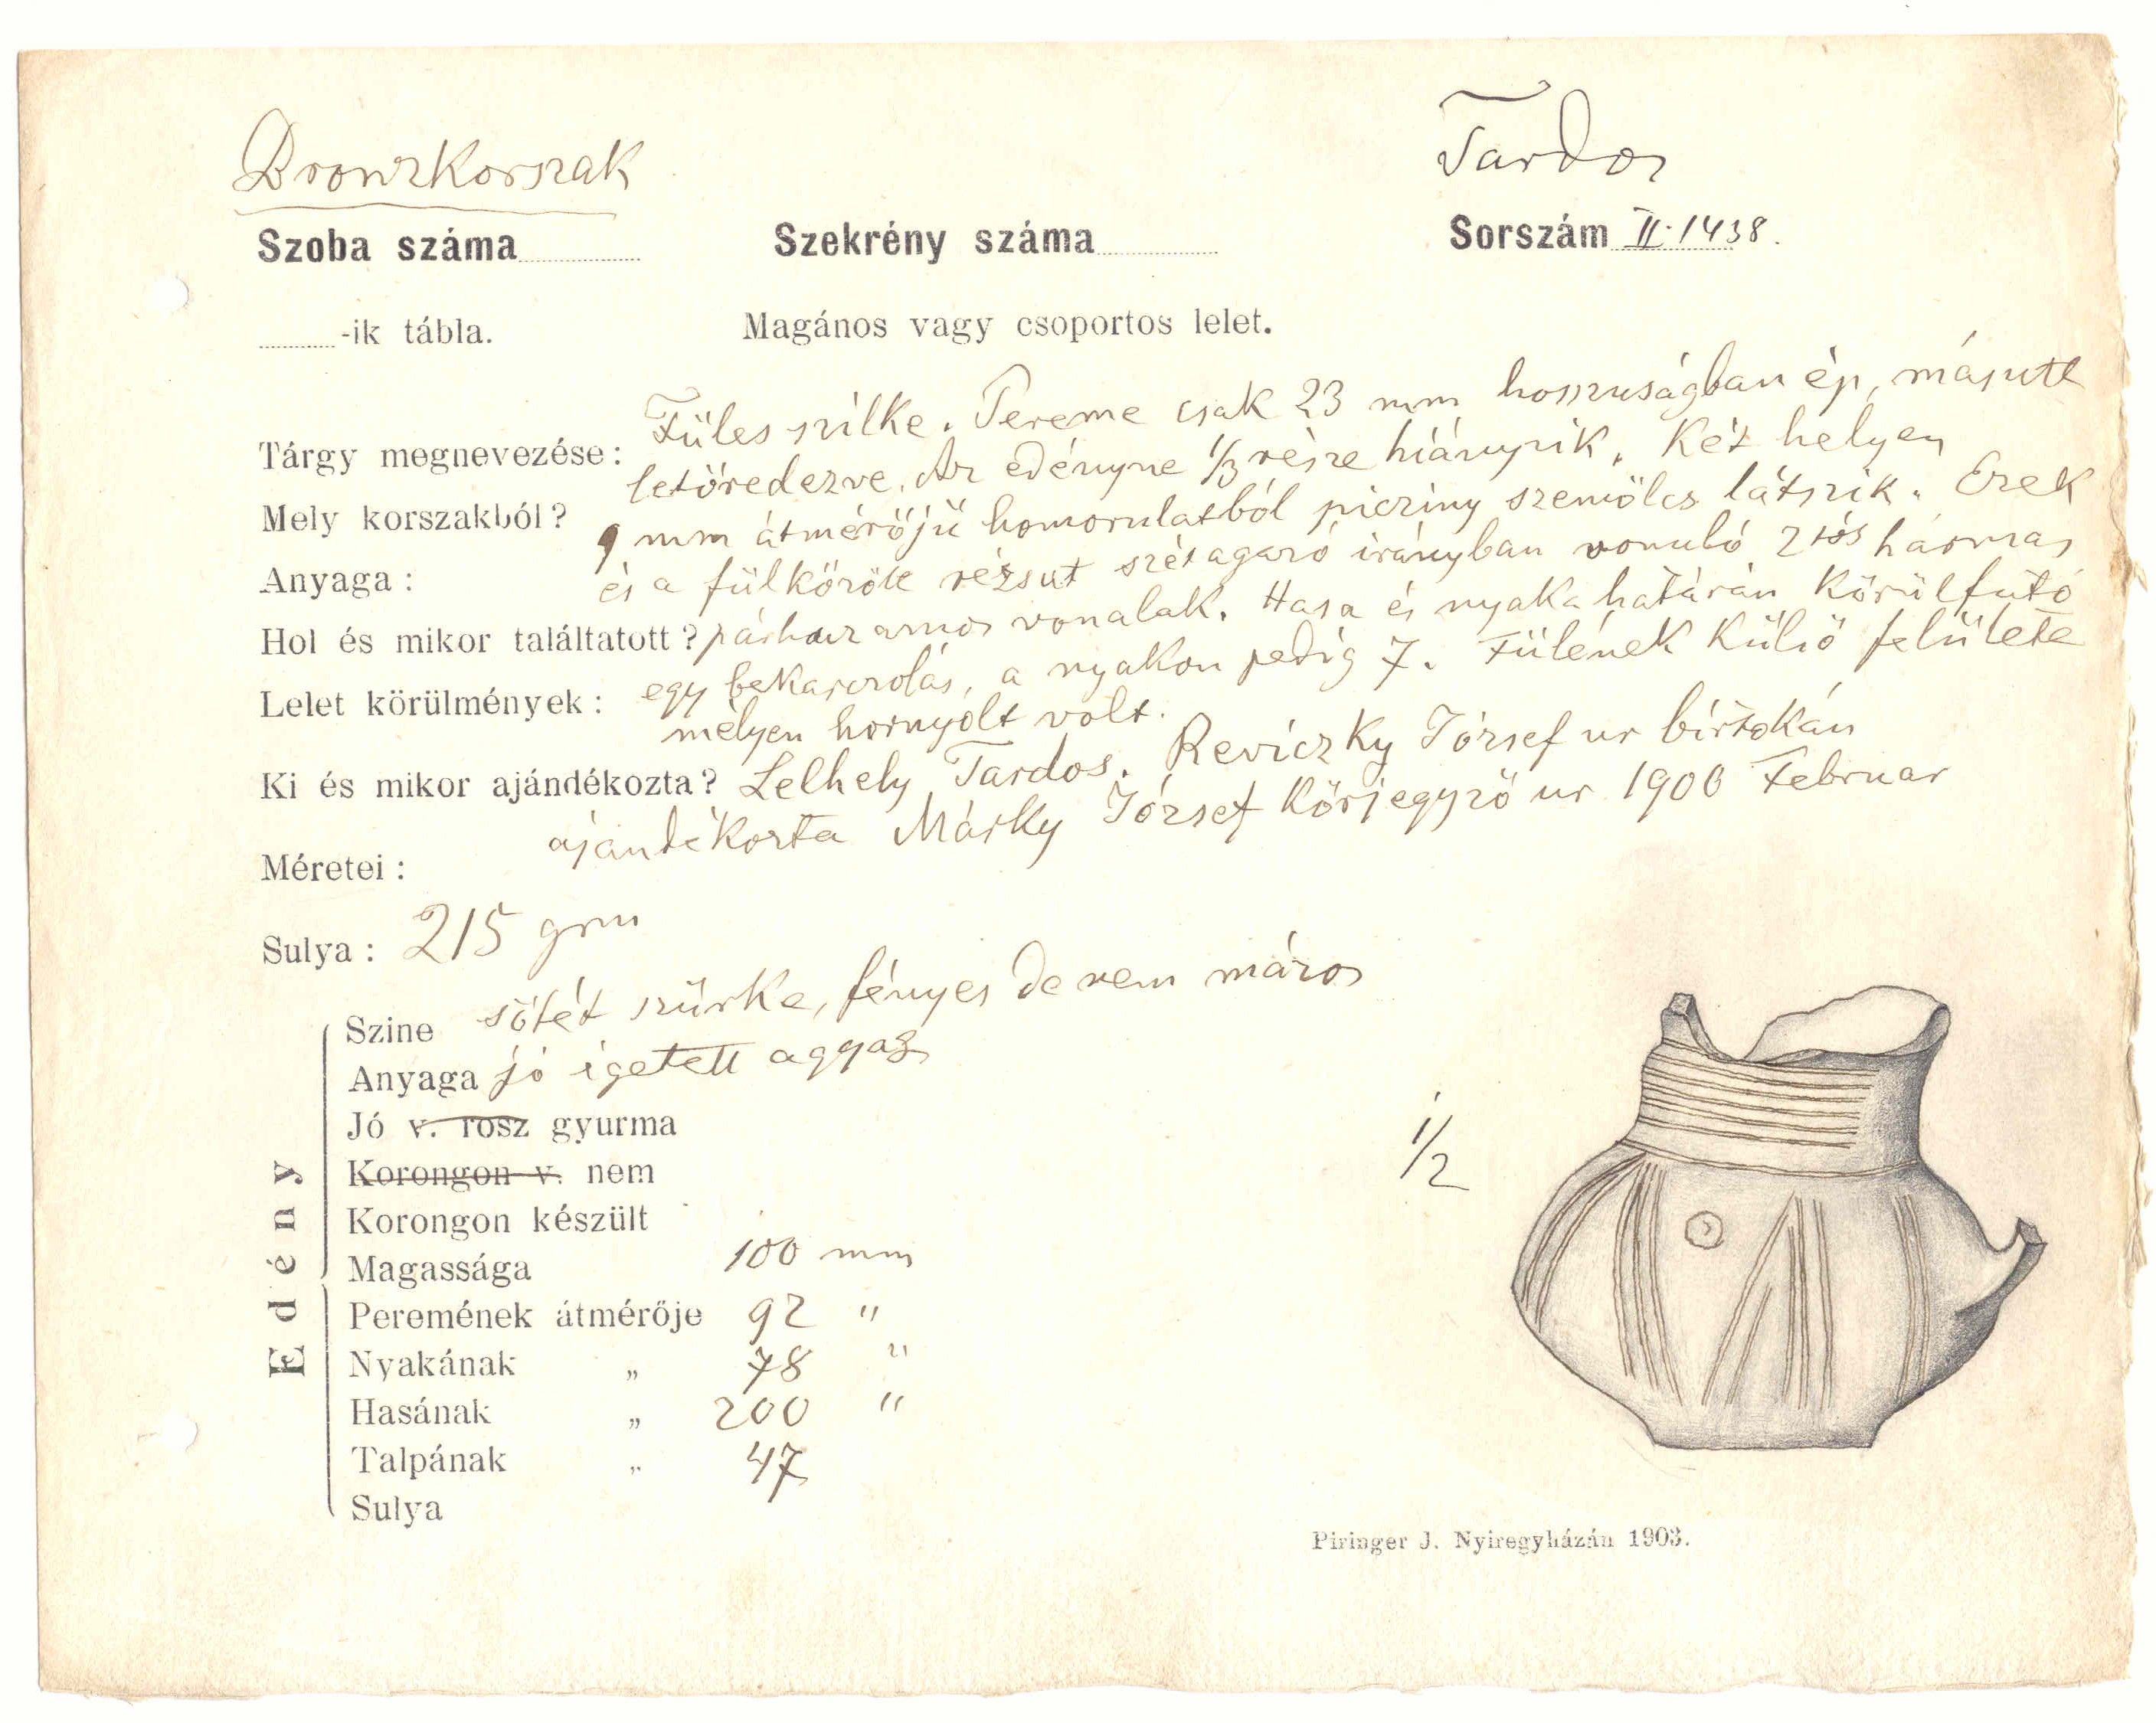 Bronzkorszak
Tardos
Szoba száma
Szekrény száma
Sorszám II. 1438.
-ik tábla.
Magános vagy csoportos lelet.
Tárgy megnevezése: Füles szilke. Pereme csak 23 mm hosszuságban ép, másutt
letöredezve. Az edényne 1/3 része hiányzik. Két helyen
Mely korszakból? 9 mm átmérőjü homorulatból picziny szemölcs látszik. Ezek
Anyaga: és a fülköröte rézsut szétagazó irányban vonuló 2tős hármas
Hol és mikor találtatott? párhuzamos vonalak. Hasa és nyaka határán körülfutó
Lelet körülmények: egy bekarczolás, a nyakon pedig 7. Fülének külső felülete
mélyen hornyolt volt.
Ki és mikor ajándékozta? Lelhely Tardos. Reviczky József ur birtokán
ajándékozta Márky József körjegyző ur 1906 Februar
Méretei:
Sulya: 215 grm
Edény
Szine sötét szürke, fényes de nem mázos
Anyaga jó égetett agyag
Jó v. rosz gyurma
Korongon v. nem
Korongon készült
Magassága 100 mm
Peremének átmérője 92 "
Nyakának „ 78 "
Hasának „ 200 "
Talpának „ 47
Sulya
1/2
Piringer J. Nyiregyházán 1903.